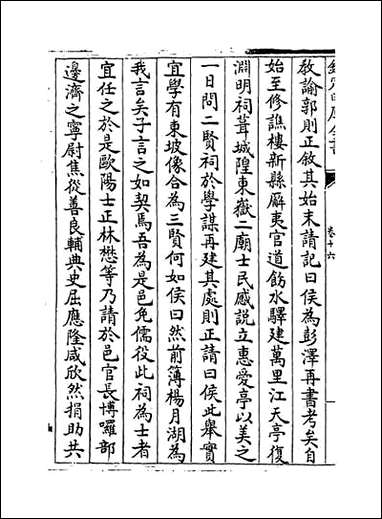 欽定四庫全書
卷十六
教諭郭則正敘其始末請記曰侯為彭澤再書考矣自
始至修譙樓新縣廨夷官道飭水驛建萬里江天亭復
淵明祠葺城隍東嶽二廟士民感説立惠愛亭以美之
一日問二賢祠於學謀再建其處則正請曰侯此舉實
宜學有東坡像合為三賢何如侯曰然前簿楊月湖為
我言矣子言之如契焉吾為是邑免儒役此祠為士者
宜任之於是歐陽士正林懋等乃請於邑官長博囉部
邊濟之寧尉焦從善良輔典史屈應隆咸欣然捐助共